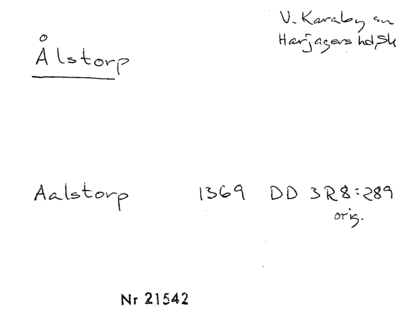 Ålstorp
V. Karaby sn
Harjagers hd, Sk
Aalstorp 1369 DD 3R8:289
orig.
Nr 21542